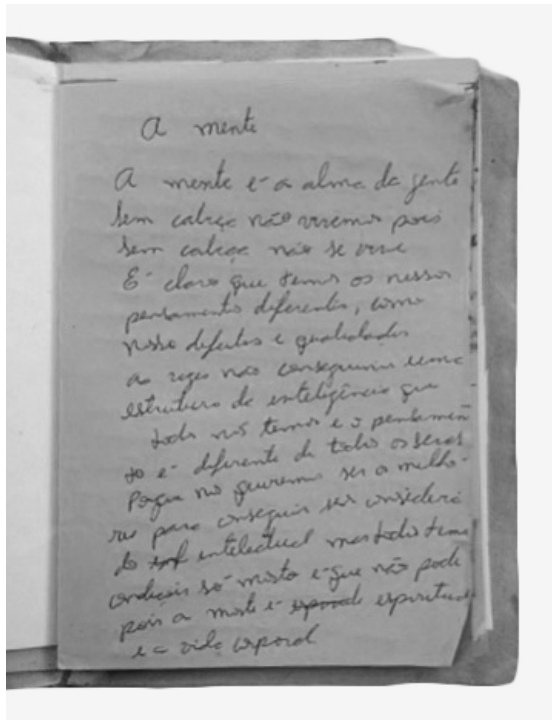 A mente
A mente e a alma da gente
Sem cabeça não vivemos pois
Sem cabeça não se vive
E claro que temos os nossos
pensamento diferentes, como
nosso defeitos e qualidades
as vezes não conseguimos uma
estrutura de inteligência que
todo nós temos e o pensamen
to e diferente de todos os seres
Porque nós queremos ser o melho-
res para conseguir ser considera
do intelectual mas todos temos
condiçois só é que não pode
pois a morte e espiritual
e a vida corporal